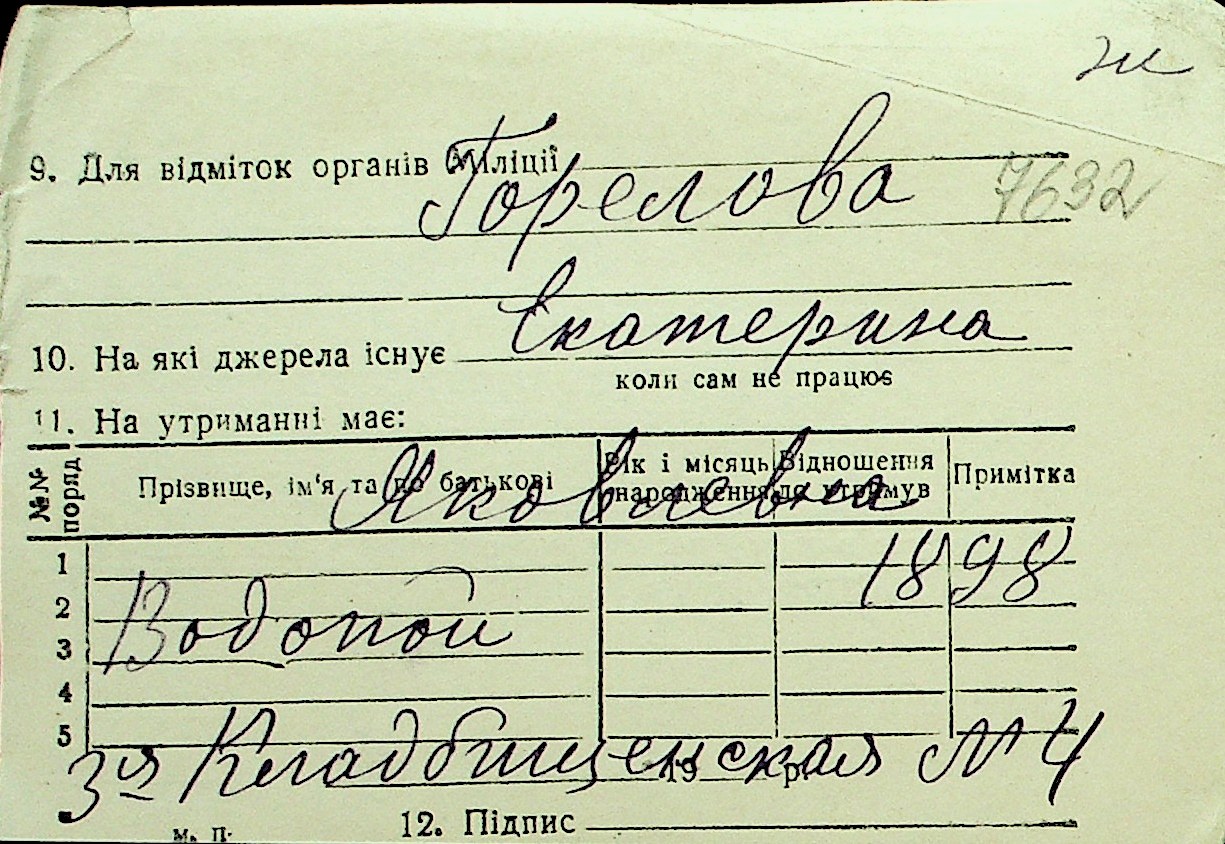 ж
9. Для відміток органів міліції
Горелова 7632
Екатерина
10. На які джерела існує
коли сам не працює
11. На утриманні має:
№№ поряд Прізвище, ім'я та по батькові Рік і місяць народження Відношення до утримув Примітка
Яковлевна
1
1898
2
Водопой
3
4
5
3я Кладбищенская № 4
19 р.
м. п. 12. Підпис